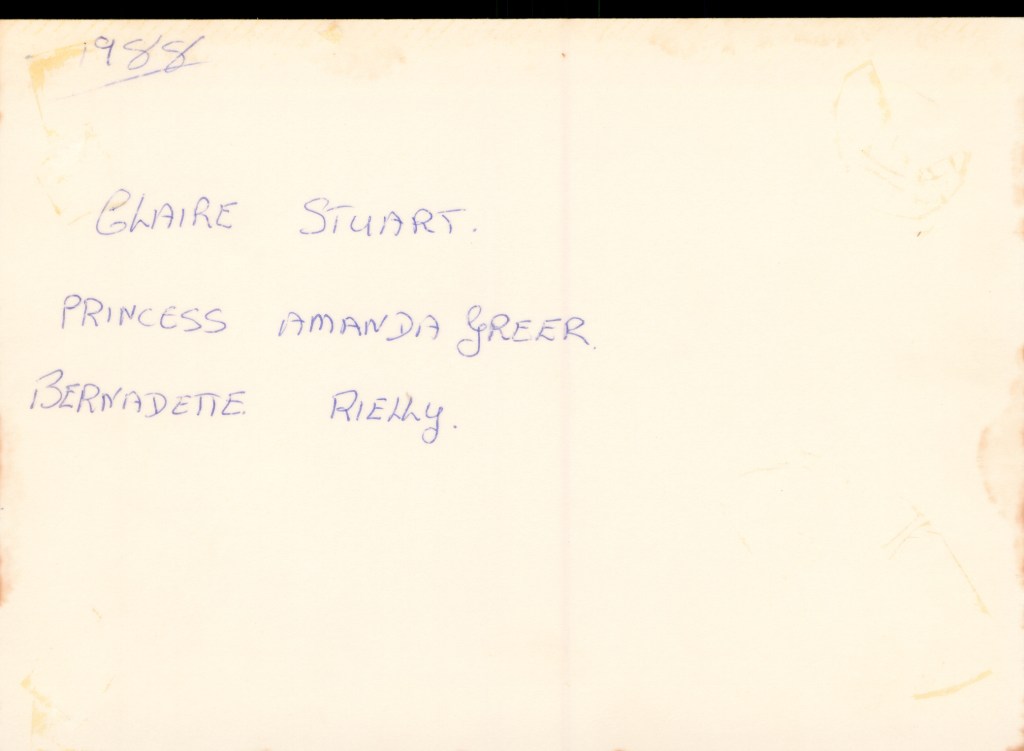 1988
CLAIRE STUART.
PRINCESS AMANDA GREER.
BERNADETTE RIELLY.